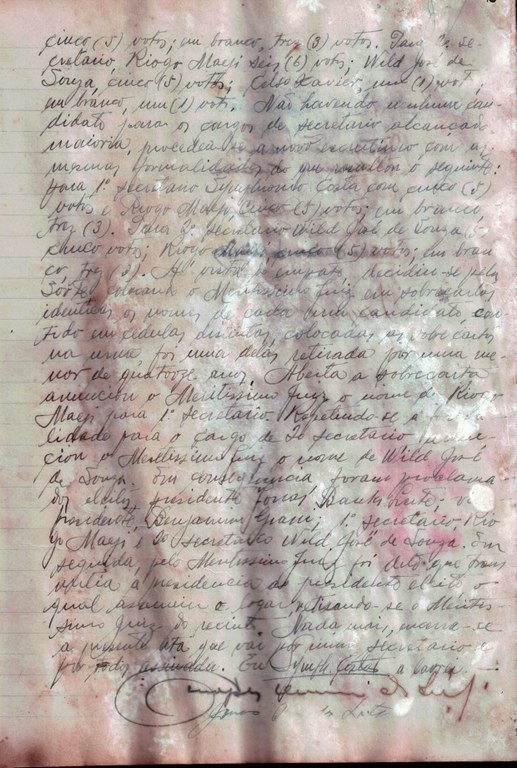 cinco (5) votos; em branco, trez (3) votos. Para 2º se-
cretario, Kiogo Maeji seis (6) votos; Wild José de
Souza, cinco (5) votos; Celso Xavier, um (1) voto,
em branco, um (1) voto. Não havendo nenhum can-
didato para os cargos de secretario alcançado
maioria, procedeu-se a novo escrutinio com as
mesmas formalidades do que resultou o seguinte:
para 1º secretario Symphronio Costa com cinco (5)
votos e Kiogo Maeji cinco (5) votos; em branco,
trez (3). Para 2º secretario Wild José de Souza
cinco votos; Kiogo Maeji cinco (5) votos; em bran-
co, trez (3). A' vista do empate decidiu-se pela
sorte, colocando o Meritissimo Juiz em sobrecartas
identicas os nomes de cada um candidato, con-
tido em cedulas distintas, colocadas as sobrecartas
na urna foi uma delas retirada por uma me-
nor de quatorze anos. Aberta a sobrecarta
anunciou o Meritissimo Juiz o nome de Kiogo
Maeji para 1º secretario. Repetindo-se a
lidade para o cargo de 2º secretario anun-
ciou o Meritissimo Juiz o nome de Wild José
de Souza. Em consequencia foram proclama-
dos eleitos, presidente Jonas
presidente, Benjamim 1º secretario, Kio-
go Maeji e 2º secretario Wild José de Souza. Em
seguida, pelo Meritissimo Juiz foi dito que
a presidencia ao presidente eleito o
qual assumiu o logar, retirando-se o Meritis-
simo Juiz do recinto. Nada mais, lavrou-se
a presente ata que vai por mim, secretario e
por todos assinada. Eu, Costa a